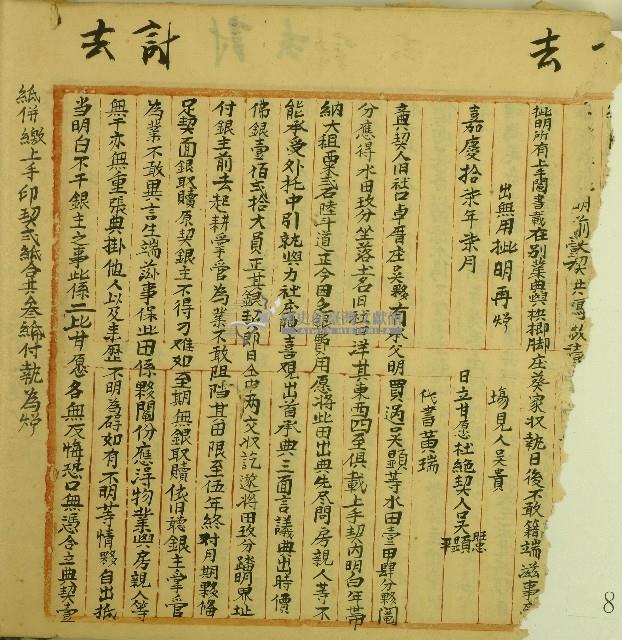 去
計去
明前該契共憑
批明所有上手鬮書載在別業典與
腳庄葵家收執日後不敢籍端滋事
出無用批明再炤
塲見人吳貴
嘉慶拾柒年柒月 日立甘愿杜絕契人吳顯
代書黃瑞
典契人旧社口卓厝庄吳夥有承父明買過吳顯等水田壹甲肆分夥鬮
分應得水田玖分坐落土名旧社口洋其東西四至俱載上手契內明白年帶
納大租粟弍石陸斗道立今因乏銀費用愿將此田出典先尽問房親人等不
能承受外托中引就與力社庄潘喜觀出首承典三面言議典出時價
佛銀壹佰弍拾大員正其銀契即日仝中兩交收訖遂將田玖分踏明界址
付銀主前去起耕掌管為業不敢阻擋其田限至伍年終對月期夥俻
足契面銀取贖原契銀主不得刁难如至期無銀取贖依旧聽銀主掌管
為業不敢異言生端滋事保此田係夥鬮份應得物業與房親人等
無干亦無重張典掛他人以及来歷不明為碍如有不明等情夥自出抵
当明白不干銀主之事此係二比甘愿各無反悔恐口無憑合立典契壹
紙併繳上手印契弍紙合共叁紙付執為炤
8